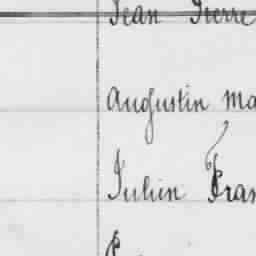 Jean Pierre
Augustin Ma
Julien Fran